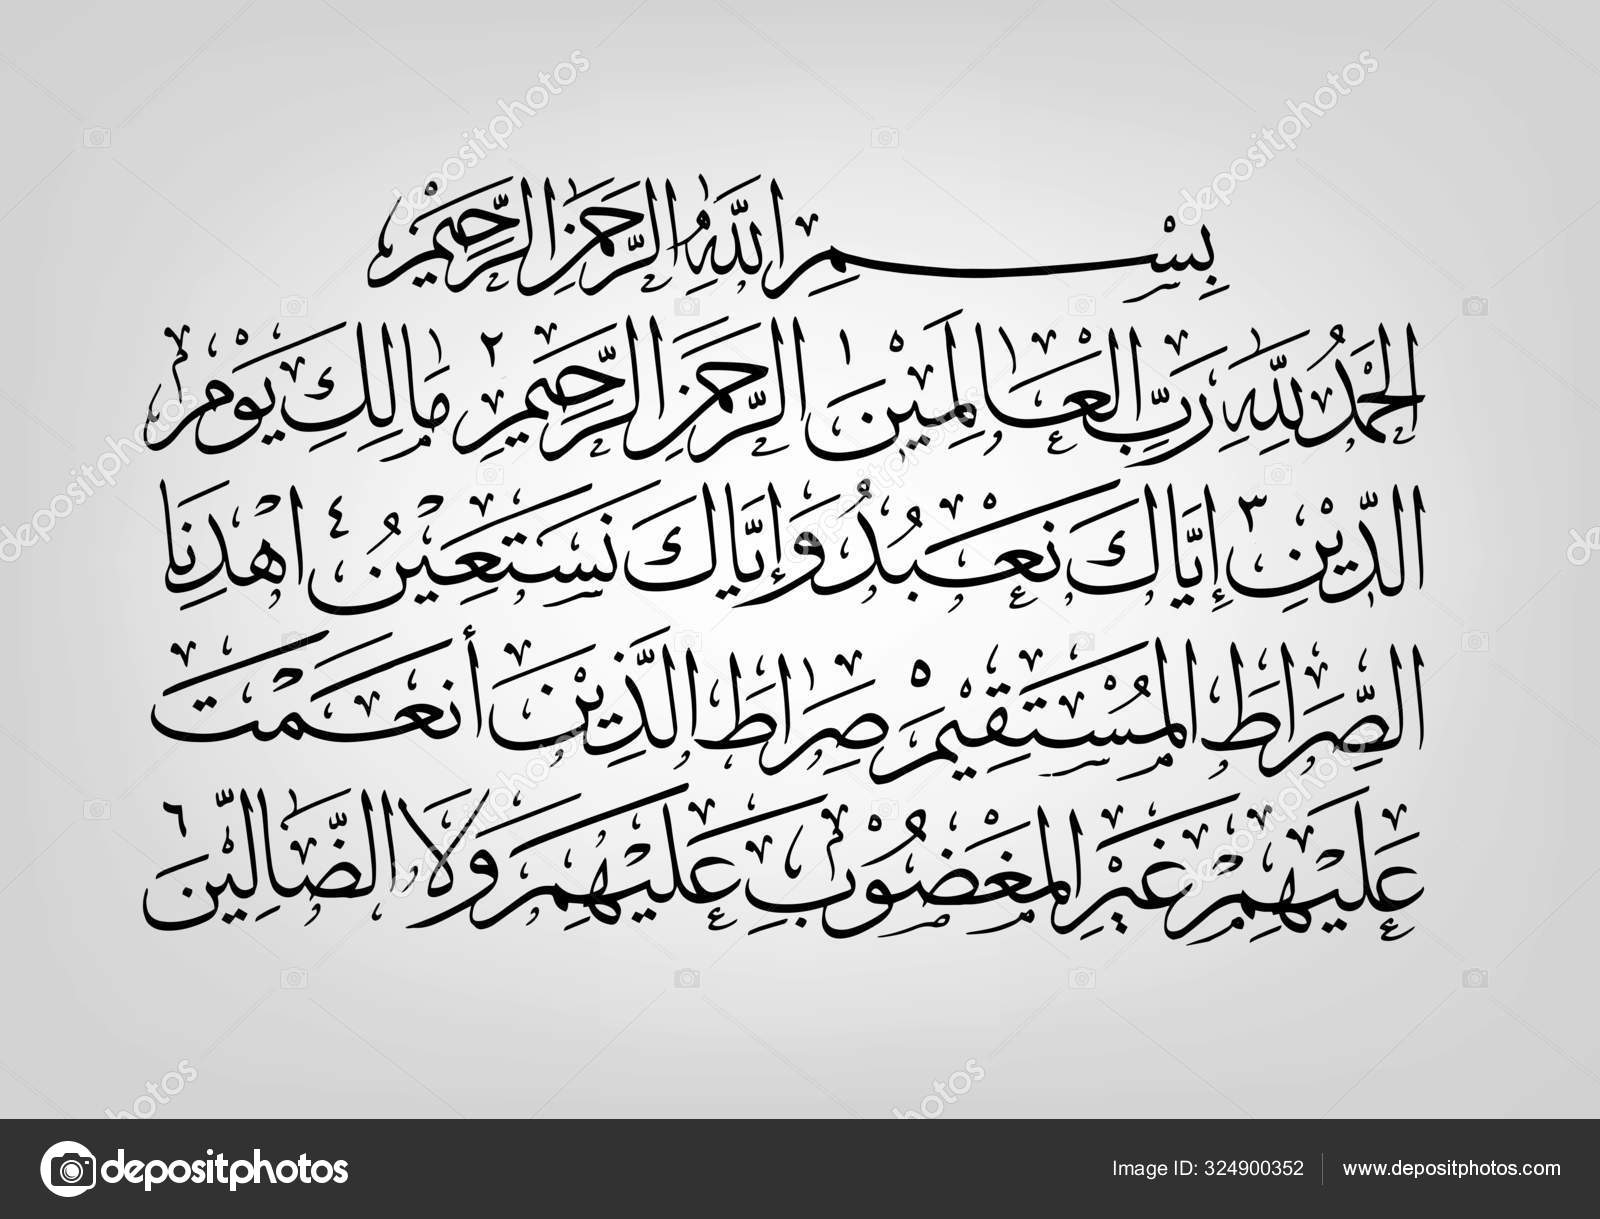 بِسْمِ اللَّهِ الرَّحْمَٰنِ الرَّحِيمِ
الْحَمْدُ لِلَّهِ رَبِّ الْعَالَمِينَ ١ الرَّحْمَٰنِ الرَّحِيمِ ٢ مَالِكِ يَوْمِ
الدِّينِ ٣ إِيَّاكَ نَعْبُدُ وَإِيَّاكَ نَسْتَعِينُ ٤ اهْدِنَا
الصِّرَاطَ الْمُسْتَقِيمَ ٥ صِرَاطَ الَّذِينَ أَنْعَمْتَ
عَلَيْهِمْ غَيْرِ الْمَغْضُوبِ عَلَيْهِمْ وَلَا الضَّالِّينَ ٦
depositphotos
Image ID: 324900352 www.depositphotos.com